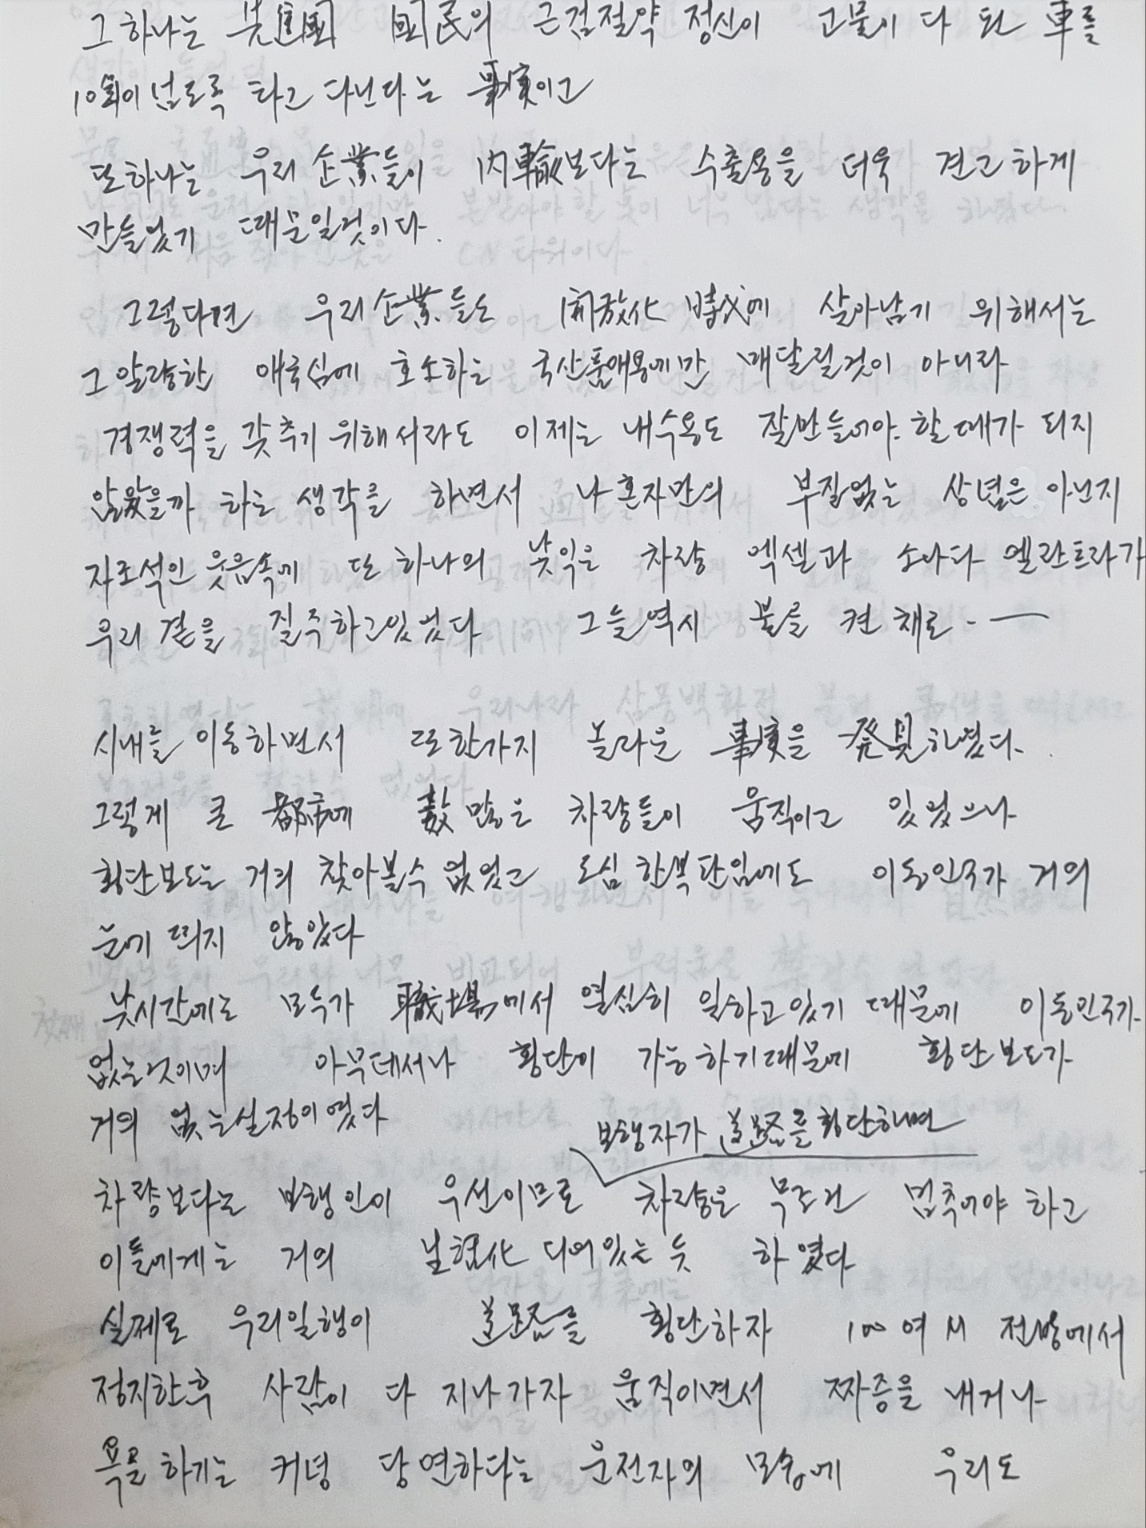 그 하나는 先進國 國民의 근검절약 정신이 고물이 다 된 車를
10年이 넘도록 타고 다닌다는 事實이고
또하나는 우리 企業들이 內輸보다는 수출용을 더욱 견고하게
만들었기 때문일것이다.
그렇다면 우리 企業들도 開放化 時代에 살아남기 위해서는
그 알량한 애국심에 호소하는 국산품애용에만 매달릴것이 아니라
경쟁력을 갖추기 위해서라도 이제는 내수용도 잘만들어야 할때가 되지
않았을까 하는 생각을 하면서 나 혼자만의 부질없는 상념은 아닌지
자조석인 웃음속에 또 하나의 낯익은 차량 엑셀과 소나다 엘란트라가
우리 곁을 질주하고있었다 그들역시 불을 켠 채로. —
시내를 이동하면서 또한가지 놀라운 事實을 發見하였다.
그렇게 큰 都市에 數 많은 차량들이 움직이고 있었으나
횡단보도는 거의 찾아볼수 없었고 도심 한복판임에도 이동인구가 거의
눈에 띄지 않았다
낮시간에는 모두가 職場에서 열심히 일하고있기 때문에 이동인구가
없는것이며 아무데서나 횡단이 가능하기때문에 횡단보도가
거의 없는실정이였다
보행자가 道路를 횡단하면
차량보다는 보행인이 우선이므로 차량은 무조건 멈추어야 하고
이들에게는 거의 되어있는 듯 하였다
실제로 우리일행이 道路를 횡단하자 100여 M 전방에서
정지한후 사람이 다 지나가자 움직이면서 짜증을 내거나
욕을 하기는 커녕 당연하다는 운전자의 모습에 우리도